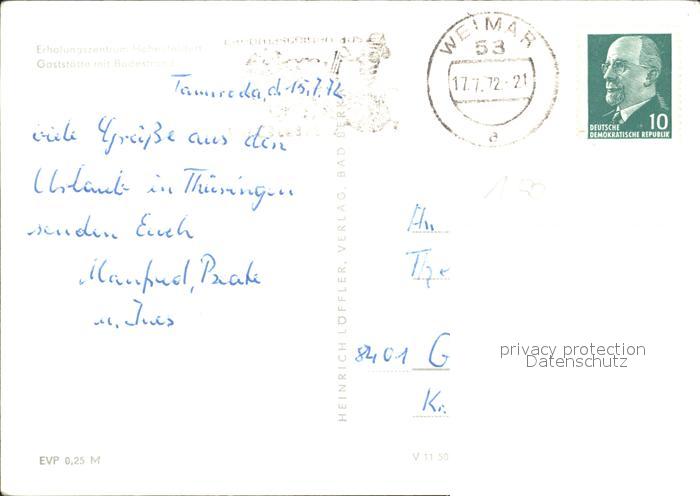 Erholungszentrum Hohenfelden
Gaststätte mit Badestrand
WEIMAR
53
17.7.72.-21
a
DEUTSCHE
DEMOKRATISCHE REPUBLIK
10
Tannroda, d. 15.7.72
viele Grüße aus den
Urlaub in Thüringen
senden Euch
Manfred, Beate
u. Ines
150
An
8401 G
Kr.
privacy protection
Datenschutz
HEINRICH LÖFFLER, VERLAG, BAD BERK
EVP 0,25 M
V 11 50